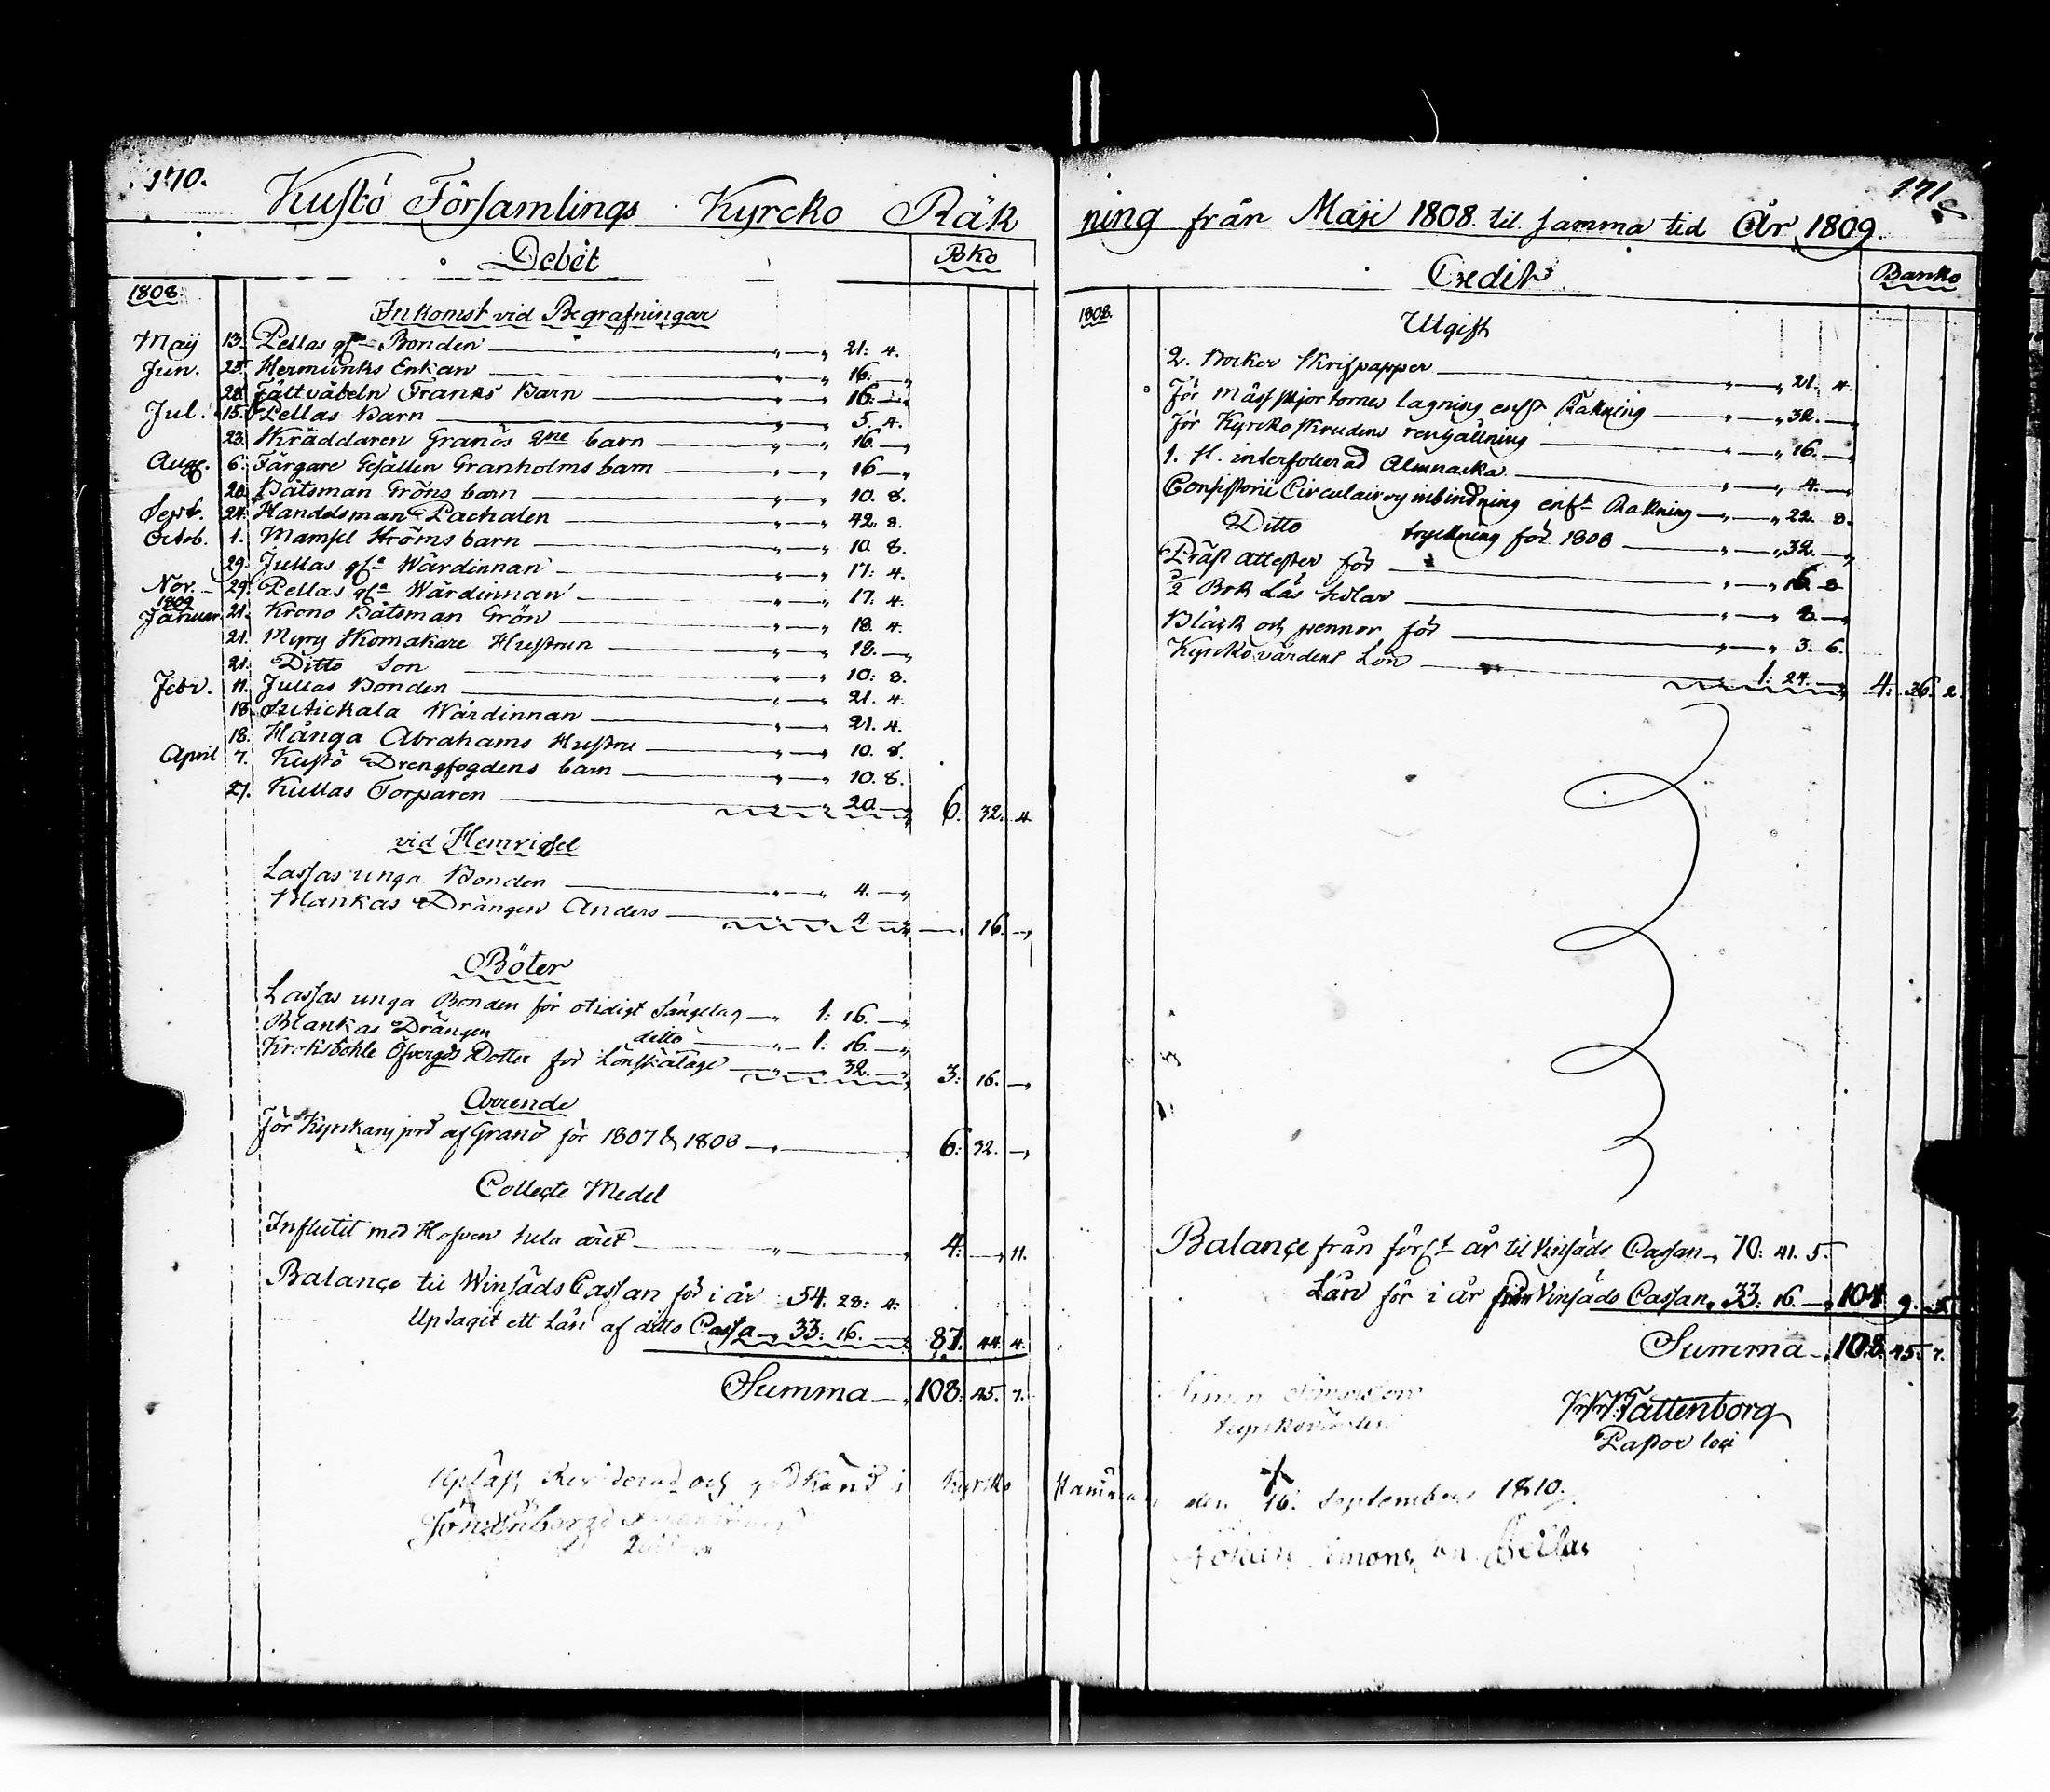 170.
Kustö Församlings Kyrcko Räk
Debet
Bko
1808
Inkomst vid Begrafningar
Maij 13. Pellas gl. Bonden 21: 4.
Jun. 25. Hermunks Enkan 16.
28. Fältväbeln Franks Barn 16.
Jul. 15. Pellas Barn 5. 4.
23. Skräddaren Granös 2ne barn 16.
Aug. 6. Färgare Gesällen Granholms barn 16
20. Båtsman Gröns barn 10. 8.
Sept. 24. Handelsman Pachalen 42. 8.
Octob. 1. Mamsel Ströms barn 10 8.
29. Jullas gla Wärdinnan 17: 4.
Nov. 29. Pellas gla Wärdinnan 17: 4.
1809
Januar. 21. Krono Båtsman Grön 18 4.
21. Myry Skomakare Hustrun 18.
21. Ditto Son 10: 8.
Febr. 11. Jullas Bonden 21. 4.
18. Wärdinnan 21. 4.
18. Hånga Abrahams Hustru 10. 8.
April 7. Kustö Drengfogdens barn 10. 8.
27. Kullas Torparen 20. 6: 32. 4
vid Hemvigsel
Lassas unga Bonden 4.
Blankas Drängen Anders 4. 16.
Böter
Lassas unga Bonden för otidigt Sängelag 1: 16.
Blankas Drängen ditto 1: 16.
Dotter för Lönskaläge 32. 3: 16.
Arrende
För Kyrckans jord af Grand för 1807 & 1808 6: 32.
Collecte Medel
Influtit med Hofven hela året 4: 11.
Balance til Winsäds Cassan för i år 54. 28: 4.
Updagit ett Lån af ditto Cassa 33: 16. 87. 44. 4.
Summa 108: 45. 7.
Upläst, Reviderad och godkänd i Kyrko
171
ning från Maji 1808. til samma tid År 1809.
Credit
Banko
1808.
Utgift
2. Böcker Skrifpapper 21. 4.
För Mässskjortornes lagning enligt Räkning 32.
För Kyrcko Skrudens rengällning 16.
1. st. interfolierad Almnacka 4.
Consistorii Circulairers inbindning enl. Räkning 22. 8.
Ditto tryckning för 1808 32.
Präst attester för 16 8
1/2 Bok Läs sedlar 8.
Bläck och pennor för 3. 6.
Kyrckovärdens Lön 1: 24. 4: 36. 2.
Balance från förl. år til Vinsäds Cassan 70: 41. 5.
Lån för i år från Vinsäds Cassan 33: 16. 104 9. 5.
Summa 108. 45. 7.
Simon Simonsson
Kyrckovärden
Tattenborg
Pastor loci
Stämma den 16. September 1810.
Simonsson Pellas